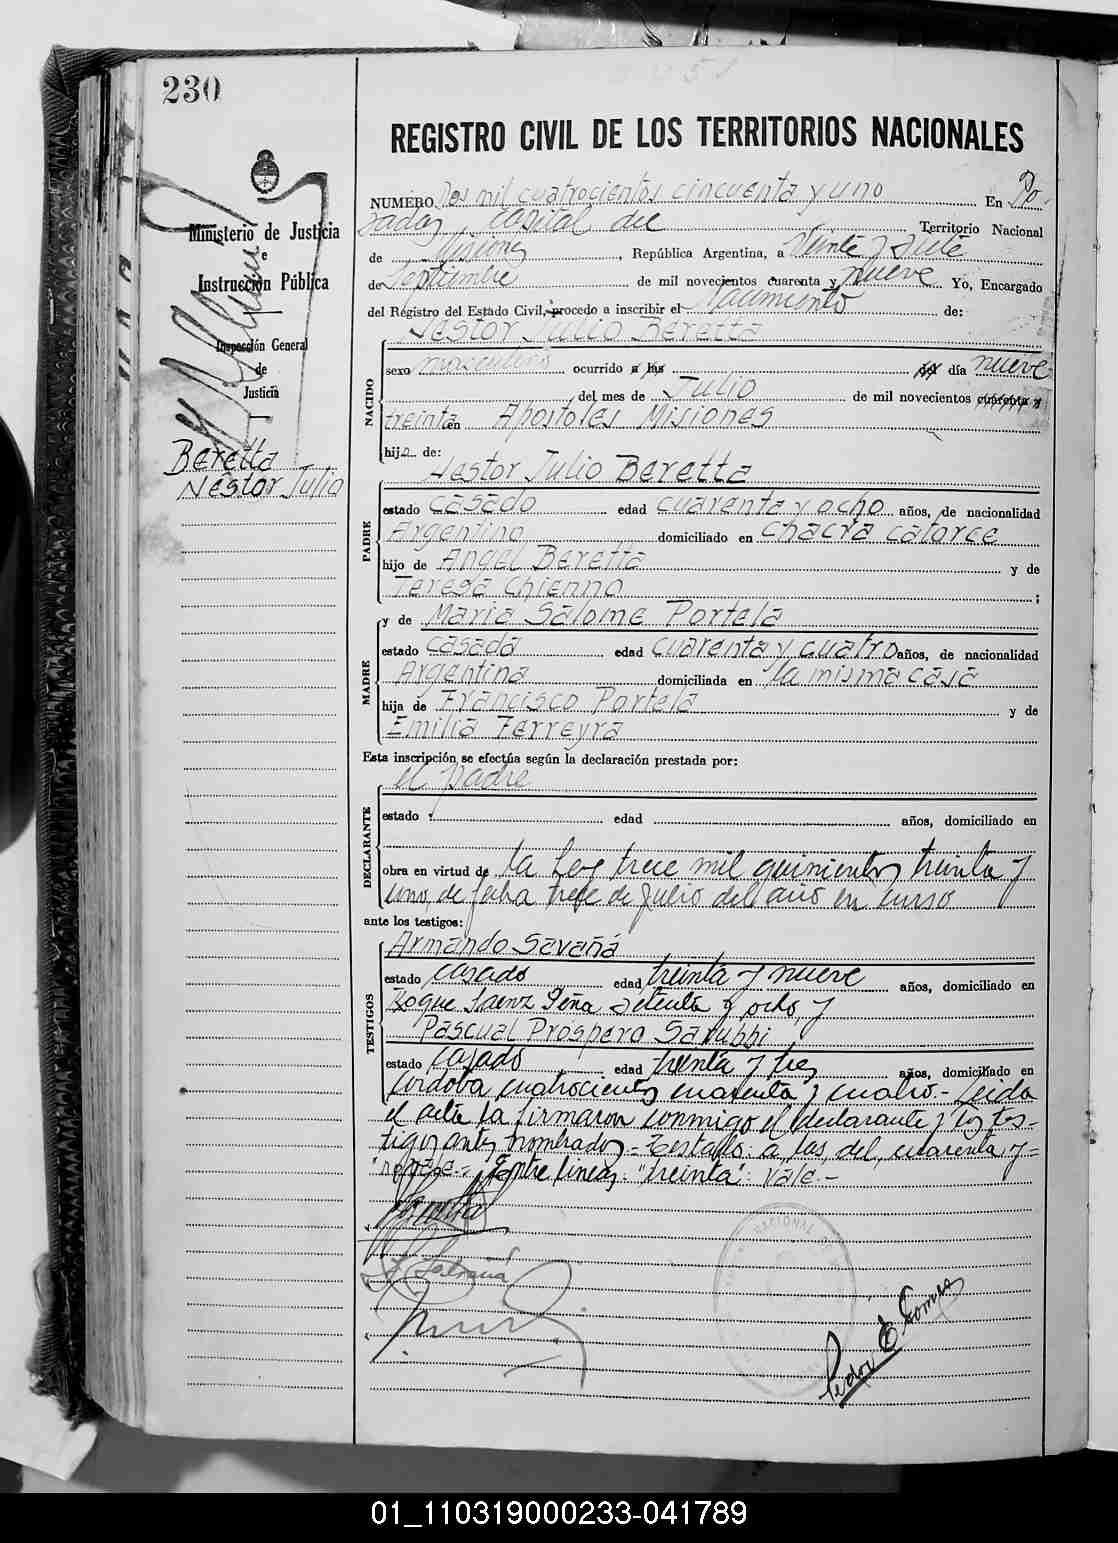 230
REGISTRO CIVIL DE LOS TERRITORIOS NACIONALES
Ministerio de Justicia
e
Instrucción Pública
Inspección General
de
Justicia
Beretta
Nestor Julio
NUMERO Dos mil cuatrocientos cincuenta y uno En Po-
sadas capital del Territorio Nacional
de Misiones, República Argentina, a veinte y siete
de Septiembre de mil novecientos cuarenta y nueve Yo, Encargado
del Registro del Estado Civil, procedo a inscribir el Nacimiento de:
NACIDO
Nestor Julio Beretta
sexo masculino ocurrido a las del día nueve
del mes de Julio de mil novecientos cuarenta y
treinta en Apóstoles Misiones
hijo de:
PADRE
Nestor Julio Beretta
estado casado edad cuarenta y ocho años, de nacionalidad
Argentino domiciliado en chacra catorce
hijo de Angel Beretta y de
Teresa Chienno;
MADRE
y de Maria Salome Portela
estado casada edad cuarenta y cuatro años, de nacionalidad
Argentina domiciliada en la misma casa
hija de Francisco Portela y de
Emilia Ferreyra
Esta inscripción se efectúa según la declaración prestada por:
DECLARANTE
el padre
estado edad años, domiciliado en
obra en virtud de la Ley trece mil quinientos treinta y
uno, de fecha trece de Julio del año en curso
ante los testigos:
TESTIGOS
Armando Savañá
estado casado edad treinta y nueve años, domiciliado en
Roque Saenz Peña setenta y ocho, y
Pascual Prospero Sarubbi
estado casado edad treinta y tres años, domiciliado en
Córdoba cuatrocientos cuarenta y cuatro.- Leida
el acta la firmaron conmigo el declarante y los tes-
tigos antes nombrados = Testado: a las, del, cuarenta y =
no vale.= Entre lineas: "treinta": Vale.-
Pedro E. Gomes
01_110319000233-041789